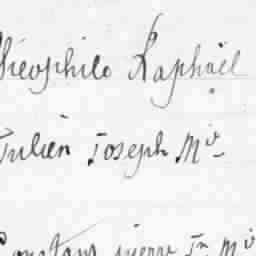 Théophile Raphaël
Julien Joseph M^ie
Constans pierre J^n M^ie